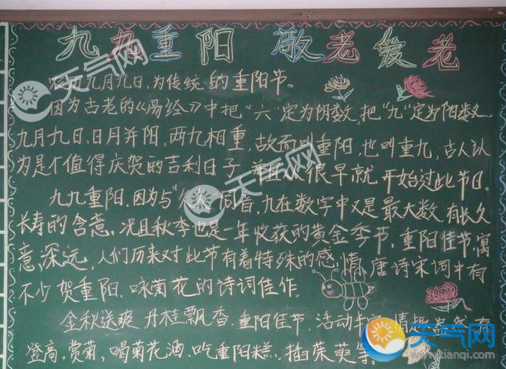 九九重阳 敬老爱老
九月九日,为传统的重阳节。
因为古老的《易经》中把“六”定为阴数,把“九”定为阳数,
九月九日,日月并阳,两九相重,故而叫重阳,也叫重九,古人认
为是个值得庆贺的吉利日子,并且从很早就开始过此节日。
九九重阳,因为与“久久”同音,九在数字中又是最大数,有长久
长寿的含意,况且秋季也是一年收获的黄金季节,重阳佳节,寓
意深远,人们历来对此节有着特殊的感情,唐诗宋词中有
不少贺重阳、咏菊花的诗词佳作。
金秋送爽,丹桂飘香,重阳佳节,活动
登高,赏菊,喝菊花酒,吃重阳糕,插茱萸等
天气网
天气网
天气网
天气网
www.tianqi.com